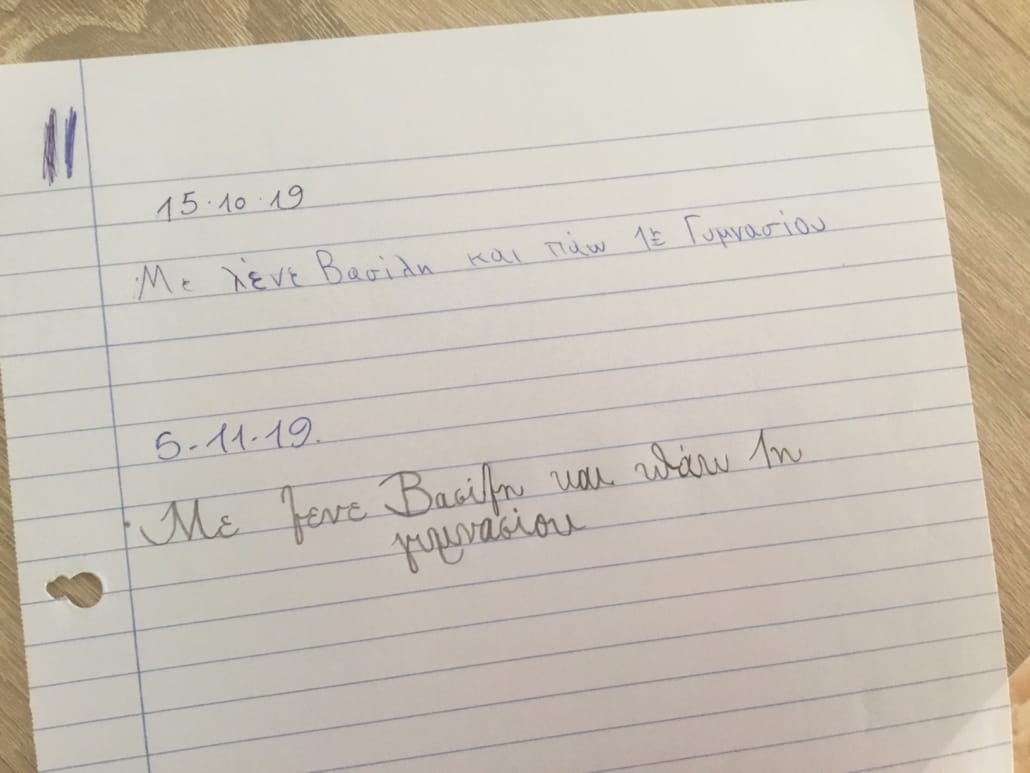 15.10.19
Με λένε Βασίλη και πάω 1ε Γυμνασίου
5-11-19.
Με λενε Βασιλη και πάω 1η
γυμνασιου